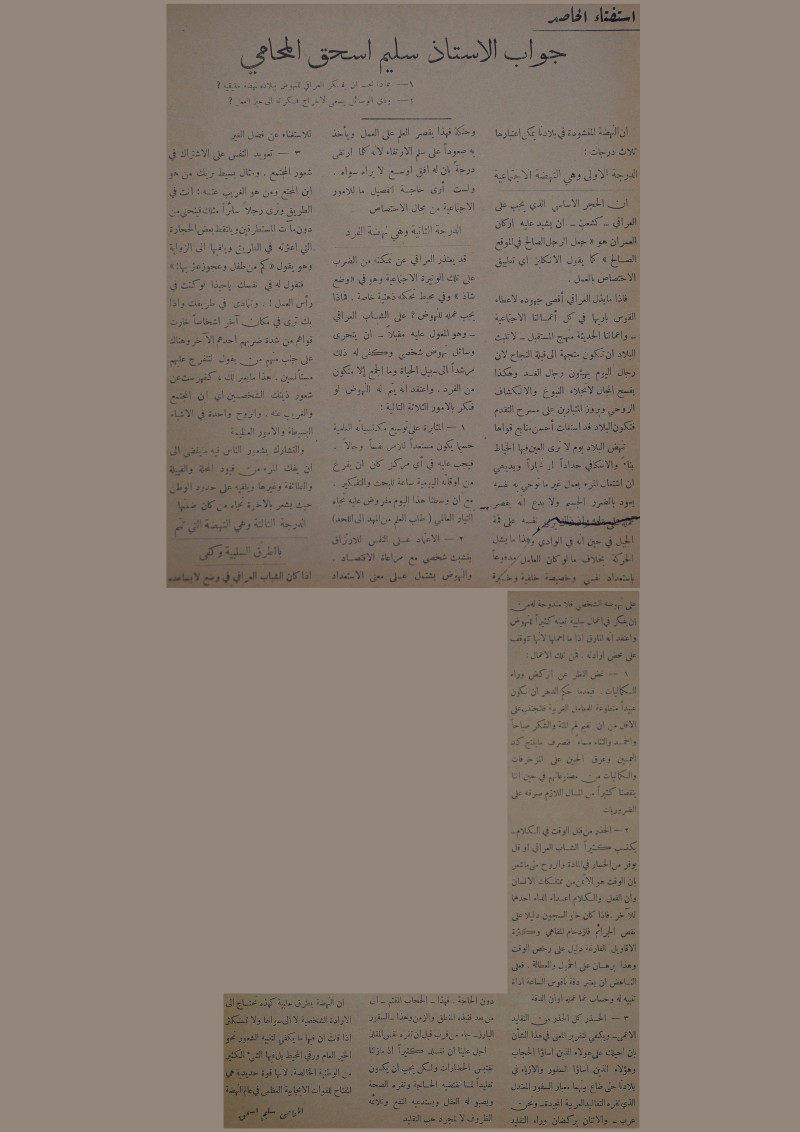 استفتاء الحاصد
جواب الاستاذ سليم اسحق المحامي
١ — ماذا يجب ان يفكر العراقي للنهوض ببلاده نهضة حقيقية ؟
٢ — وباي الوسائل يسعى لاخراج فكرته الى حيز العمل ؟
ان النهضة المنشودة في بلادنا يمكن اعتبارها
ثلاث درجات :
الدرجة الاولى وهي النهضة الاجتماعية
ان الحجر الاساسي الذي يجب على
العراقي ــ كشعب ــ ان يشيد عليه اركان
العمران هو « جعل الرجل الصالح في الموقع
الصالح » كما يقول الانكليز اي تطبيق
الاختصاص بالعمل .
فاذا ما بذل العراقي أقصى جهوده لاعطاء
القوس باريها في كل أعمالنا الاجتماعية
ــ واعمالنا الحديثة منهج المستقبل ــ لا تلبث
البلاد ان تكون متجهة الى قبلة النجاح لان
رجال اليوم يربّون رجال الغد وهكذا
يفسح المجال لانجلاء النبوغ والانكشاف
الروحي وبروز المتبارين على مسرح التقدم
فتكون البلاد قد استغلت أحسن منابع قواها
تنهض البلاد يوم لا ترى العين فيها الخياط
بناءً والاسكافي حداداً او نجاراً وبديهي
ان اشتغال المرء بعمل غير ما توحي به نفسه
يعود بالضرر الجسيم ولا بدع انه يقصر
نفسه على قمة
الجبل في حين انه في الوادي وهذا ما يشل
الحركة بخلاف ما لو كان العامل مدفوعاً
باستعداد نفسي وخصيصة خلقية وخبرة
وحنكة فهذا يقصر العلم على العمل ويأخذ
به صعوداً على سلم الارتقاء لانه كلما ارتقى
درجةً بان له افق اوسع لا يراه سواه .
ولست أرى حاجة لتفصيل ما للامور
الاجتماعية من مجال الاختصاص
الدرجة الثانية وهي نهضة الفرد
قد يعتذر العراقي عن تمكنه من الضرب
على تلك الوتيرة الاجتماعية وهو في « وضع
شاذ » وفي محيط تحكمه ذهنية خاصة . فماذا
يجب عمله للنهوض ؟ على الشباب العراقي
ــ وهو المعول عليه مقبلاً ــ ان يتحرى
وسائل نهوض شخصي وكفى له ذلك
مرشداً الى سبيل الحياة وما الجمع إلا متكون
من الفرد . واعتقد انه يتم له النهوض لو
فكر بالامور الثلاثة التالية :
١ — المثابرة على توسيع مكتسباته العلمية
حسبما يكون مستعداً للامر نفساً وحالاً .
فيجب عليه في أي مركز كان ان يفرغ
من اوقاته اليومية ساعة للبحث والتفكير .
مع ان وسطنا هذا اليوم مفروض عليه تجاه
التيار العالمي ( طلب العلم من المهد الى اللحد )
٢ — الاعتماد على النفس للارتزاق
بتثبت شخصي مع مراعاة الاقتصاد .
والنهوض يشتمل على معنى الاستعداد
للاستغناء عن فضل الغير
٣ — تعويد النفس على الاشتراك في
شعور المجتمع . ومثال بسيط يريك من هو
ابن المجتمع ومن هو الغريب عنه : انت في
الطريق وترى رجلاً سائراً مثلك فينحني من
دون مآت المستطرقين ويلتقط بعض الحجارة
التي اعثرته في الطريق ويلقيها الى الزواية
وهو يقول « كم من طفل وعجوز عثر بها ! »
فتقول له في نفسك ياحبذا لو كنت في
رأس العمل ! . وتمادى في طريقك واذا
بك ترى في مكان آخر اشخاصاً خارت
قواهم من شدة ضربهم احدهم الآخر وهناك
على جنب منهم من يقول لنتفرج عليهم
مستأنسين . هذا ما يعبر لك ، كفهرست عن
شعور ذينك الشخصين اي ابن المجتمع
والغريب عنه . والروح واحدة في الاشياء
البسيطة والامور العظيمة
والتشارك بشعور الناس فيه ما يفضي الى
ان يفك المرء من قيود المحلة والقبيلة
والطائفة وغيرها ويلقيه على حدود الوطن
حيث يشعر بالاخوة تجاه من كان ضمنها
الدرجة الثالثة وهي النهضة التي تتم
بالطرق السلبية وكفى
اذا كان الشباب العراقي في وضع لا يساعده
على نهوضه الشخصي فلا مندوحة له من
ان يفكر في اعمال سلبية تعينه كثيراً للنهوض
واعتقد انه المارق اذا ما اهملها لانها تتوقف
على محض ارادته . فمن تلك الاعمال :
١ — غض النظر عن الركض وراء
الكماليات . فبعدما حكم الدهر ان نكون
عبيداً متطوعة للمعامل الغربية فلنجتنب على
الاقل من ان نقيم لهم المنة والشكر صباحاً
والحمد والثناء مساءً فنصرف ما ينتج كد
اليمين وعرق الجبين على المزخرفات
والكماليات من مصنوعاتهم في حين اننا
ينقصنا كثيراً من المال اللازم صرفه على
الضروريات
٢ — الحذر من قتل الوقت في الكلام ــ
يكتسب كثيراً الشباب العراقي او قل
يوفر من الخسار في المادة والروح متى ما شعر
بان الوقت هو الاثمن من ممتلكات الانسان
وان الفعل والكلام اعداء الداء احدهما
للآخر . فاذا كان خلو السجون دليلا على
نقص الجرائم فازدحام المقاهي وكثرة
الاقاويل الفارغة دليل على رخص الوقت
وهذا برهان على الخمول والعطالة . فعلى
الناهض ان يعتبر دقة ناقوس الساعة اداة
تنبيه له وحساب عما عمله اوان الدقة
٣ — الحذر كل الحذر من التقليد
الاعمى ــ ويكفي لتقرير المعنى في هذا الشأن
بان احيلك على هؤلاء الذين اساؤا الحجاب
وهؤلاء الذين اساؤا السفور والازياء في
بلادنا حتى ضاع بينهما معيار السفور المعتدل
الذي تقره التقاليد العربية المجيدة . ونحن
عرب ــ والاثنان يركضان وراء التقليد
دون الحاجة . فهذا ــ الحجاب المتقوم ــ آت
من بعد فتبذه المنطق والزمن وهذا ــ السفور
البارز ــ جاء من قرب قبل ان تقره نفس البلاد
اجل علينا ان نقلد كثيراً اذ مازلنا
نقتبس الحضارات ولكن يجب ان يكون
تقليداً لما تقتضيه الحاجة وتقره الصحة
ويصبو له العقل ويستدعيه النفع وتلائه
الظروف لا لمجرد حب التقليد
ان النهضة بطرق سلبية كهذه تحتاج الى
الارادة الشخصية لا الى سواها ولا تستنكر
اذا قلت ان فيها ما يكفي لتلبية الشعور نحو
الخير العام ورقي المحيط بل فيها الشيء الكثير
من الوطنية الخالصة . لانها قوة حديدية هي
المفتاح للقوات الايجابية العظمى في عالم النهضة
المحامي سليم اسحق